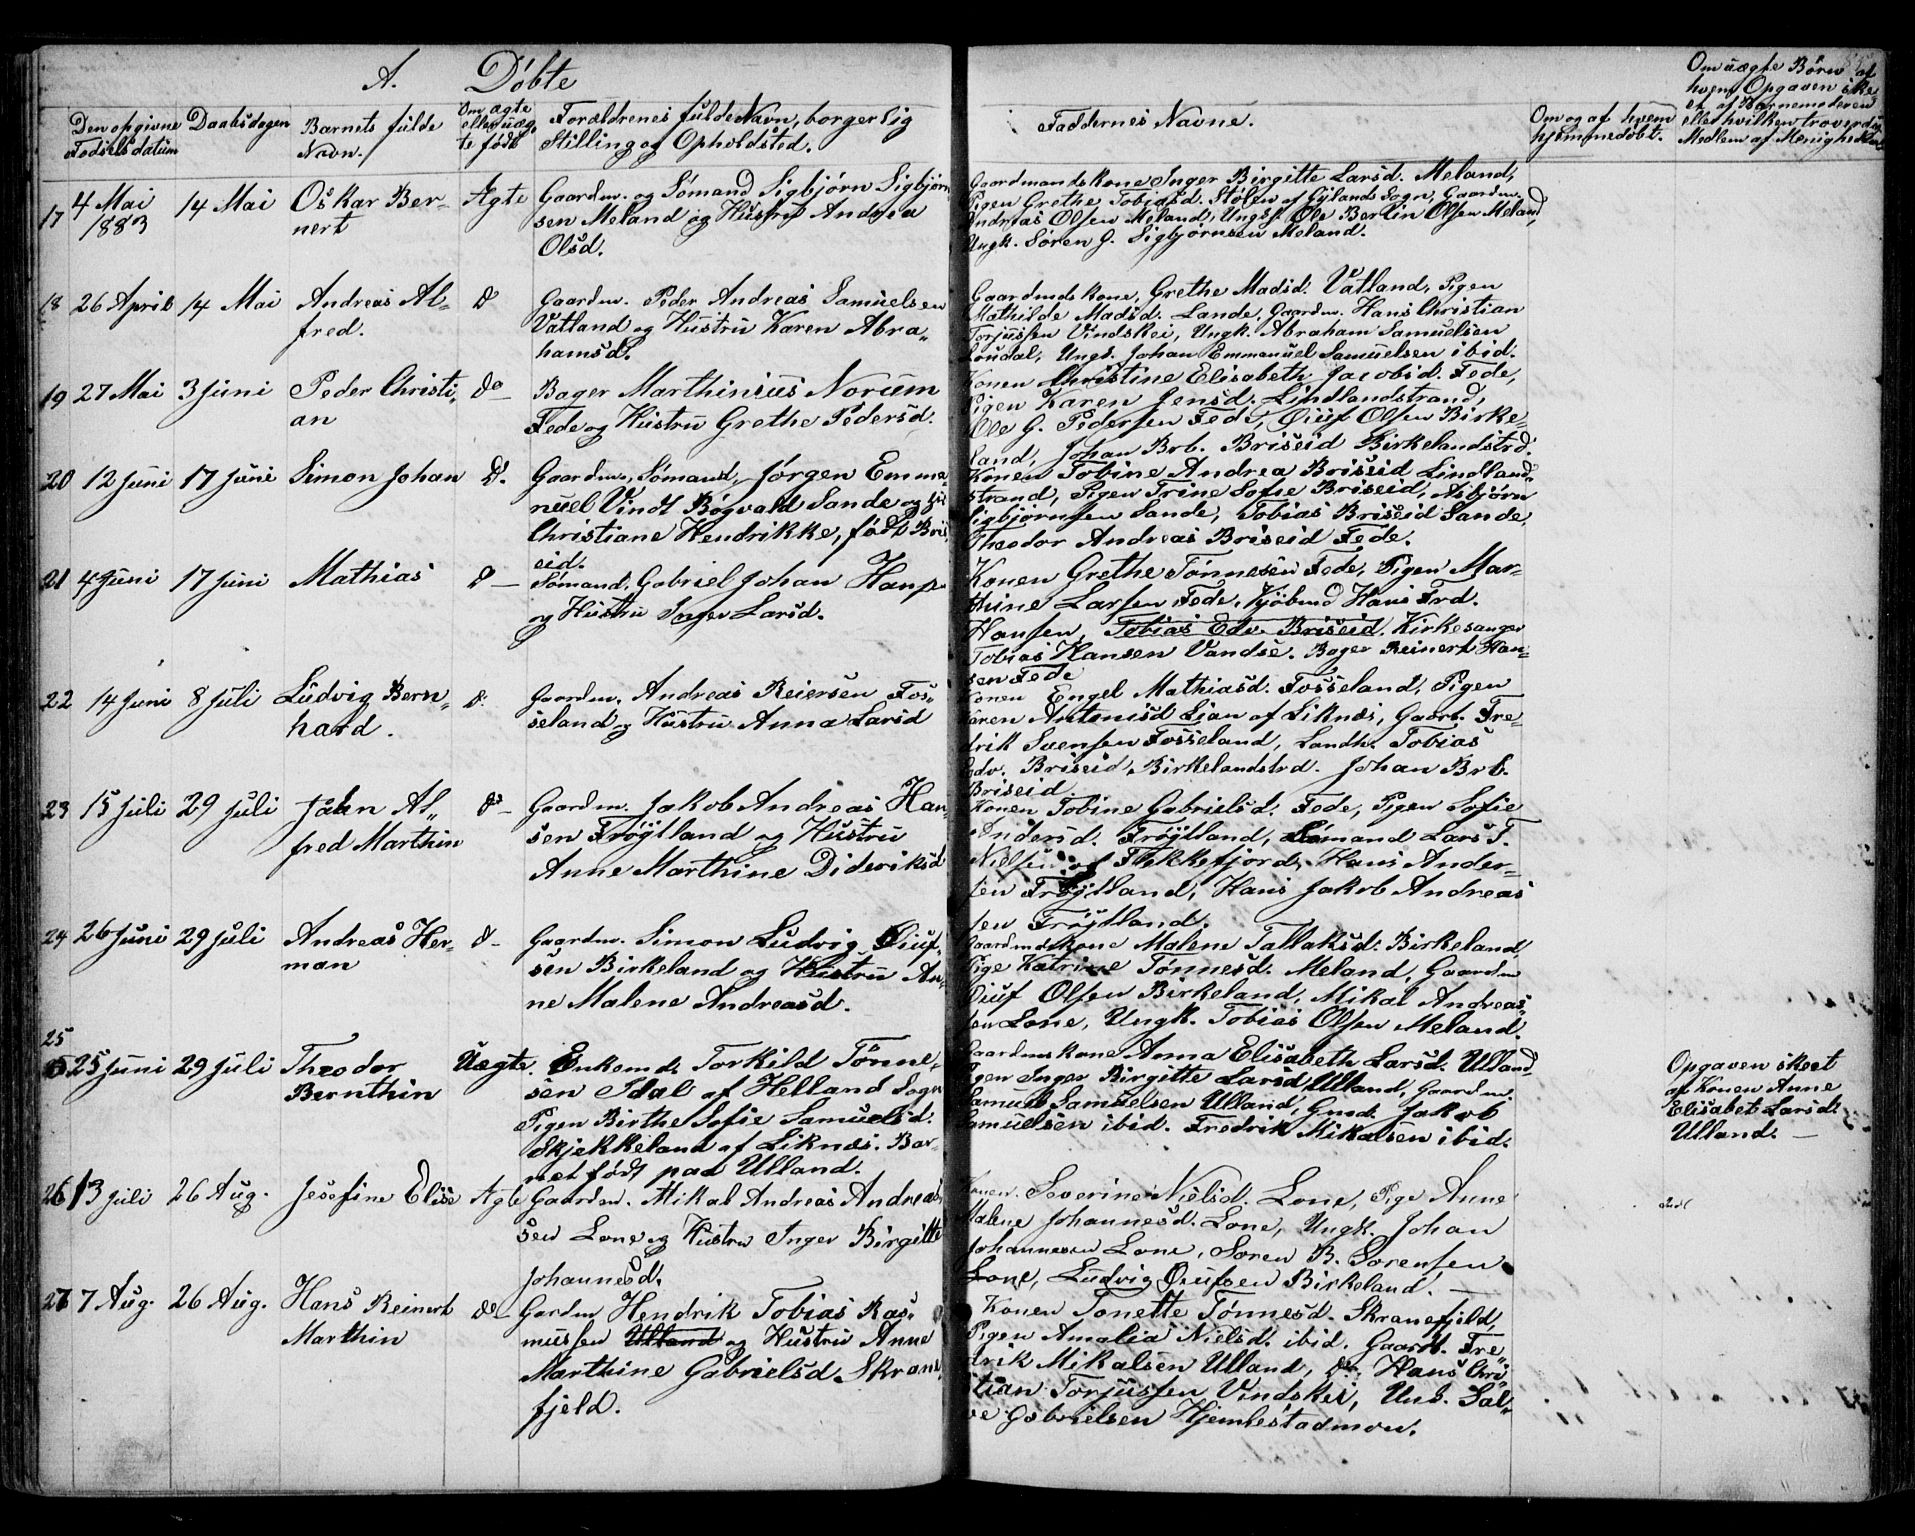 A. Døbte
Den opgivne Fødselsdatum
Daabsdagen
Barnets fulde Navn.
Om ægte eller uægte født
Forældrenes fulde Navn, borgerlig Stilling og Opholdsted.
Faddernes Navne.
Om og af hvem hjemmedøbt.
Om uægte Børn af hvem Opgaven skeet af Barnemoderen eller hvilken troværdig Medlem af Menigheden
17 4 Mai 1883 14 Mai Oskar Bernert Ægte
Gaardm. og Sømand Sigbjørn Sigbjørn
sen Meland og Hustru Andrea
Olsd.
Gaardmandskone Inger Birgitte Larsd. Meland,
Pigen Grethe Tobiasd. Stølen af Gylands Sogn, Gaardm.
Andreas Olsen Meland, Ungk. Ole Bertin Olsen Meland,
Ungk. Søren G. Sigbjørnsen Meland.
18 26 April 14 Mai Andreas Alfred. Do
Gaardm. Peder Andreas Samuelsen
Vatland og Hustru Karen Abra-
hamsd.
Gaardmdskone, Grethe Madsd. Vatland, Pigen
Mathilde Madsd. Lande, Gaardm. Hans Christian
Torjussen Vindskei, Ungk. Abraham Samuelsen
Loudal, Ungk. Johan Emmanuel Samuelsen ibid.
19 27 Mai 3 Juni Peder Christian do
Bager Marthinius Norum
Fede og Hustru Grethe Pedersd.
Konen Christine Elisabeth Jacobsd. Fede,
Pigen Karen Jensd. Lindlandstrand,
Ole G. Pedersen Fede, Øiuf Olsen Birke-
land, Johan Brb. Briseid Birkelandstrd.
20 12 Juni 17 Juni Simon Johan D.
Gaardm, Sømand, Jørgen Emma-
nuel Vindt Bøgvald Sande og
Christiane Hendrikke, født Bris
eid.
Konen Tobine Andrea Briseid Lindland-
strand, Pigen Trine Sofie Briseid, Asbjørn
Sigbjørnsen Sande, Tobias Briseid Sande,
Theodor Andreas Briseid Fede.
21 4 Juni 17 Juni Mathias D
Sømand. Gabriel Johan Hans
og Hustru Inger Larsd.
Konen Grethe Tønnesen Fede, Pigen Mar-
thine Larsen Fede, Kjøbmd Hans Frd.
Hansen, Tobias Edv. Briseid. Kirkesanger
Tobias Hansen Vandse. Bager Reinert Han-
sen Fede
22 14 Juni 8 Juli Ludvig Bernhard. d.
Gaardm. Andreas Reiersen Fos-
seland og Hustru Anna Larsd
Konen Engel Mathiasd. Fosseland, Pigen
Karen Antonisd Lian af Liknæs, Gaarb. Fre-
drik Svensen Fosseland, Landh. Tobias
Edv. Briseid, Birkelandstrd. Johan Brb.
Briseid.
23 15 Juli 29 Juli Johan Alfred Marthin do
Gaardm. Jakob Andreas Han-
sen Frøytland og Hustru
Anne Marthine Dideriksd
Konen Tobine Gabrielsd. Fede, Pigen Sofie
Andersd. Frøytland, Sømand Lars T.
Nielsen af Flekkefjord, Hans Ander-
sen Frøytland, Hans Jakob Andreas
sen Frøytland.
24 26 Juni 29 Juli Andreas Herman d
Gaardm. Simon Ludvig Øiuf-
sen Birkeland og Hustru An-
ne Malene Andreasd.
Gaardmdskone Malene Tallaksd. Birkeland,
Pige Katrine Tønnesd. Meland, Gaardm
Øiuf Olsen Birkeland, Mikal Andreas-
sen Lone, Ungk. Tobias Olsen Meland.
25 25 Juni 29 Juli Theodor Bernthin Uægte.
Enkemd. Torkild Tønne-
sen Idal af Helland Sogn
Pigen Birthe Sofie Samuelsd.
Skjekkeland af Liknæs. Bar-
net født paa Ulland.
Gaardmskone Anna Elisabeth Larsd. Ulland,
Pigen Inger Birgitte Larsd Ulland, Gaardm.
Samuel Samuelsen Ulland, Gmd. Jakob
Samuelsen ibid. Fredrik Mikalsen ibid.
Opgaven skeet
af Konen Anne
Elisabet Larsd.
Ulland.
26 13 Juli 26 Aug. Josefine Elise Ægte
Gaardm. Mikal Andreas Andreas
sen Lone og Hustru Inger Birgitte
Johannesd.
Konen. Severine Nielsd. Lone, Pige Anne
Malene Johannesd. Lone, Ungk. Johan
Johannesen Lone, Søren B. Sørensen
Lone, Ludvig Øiufsen Birkeland.
27 7 Aug. 26 Aug. Hans Reinert Marthin do
Gardm. Hendrik Tobias Ras-
mussen Ulland og Hustru Anne
Marthine Gabrielsd. Skrane
fjeld.
Konen Tonette Tønnesd. Skranefjeld,
Pigen Amalia Nielsd. ibid. Gaardb. Fre
drik Mikalsen Ulland, do. Hans Chri
stian Torjussen Vindskei, Ung. Sal-
ve Gabrielsen Hjemlestadmon.